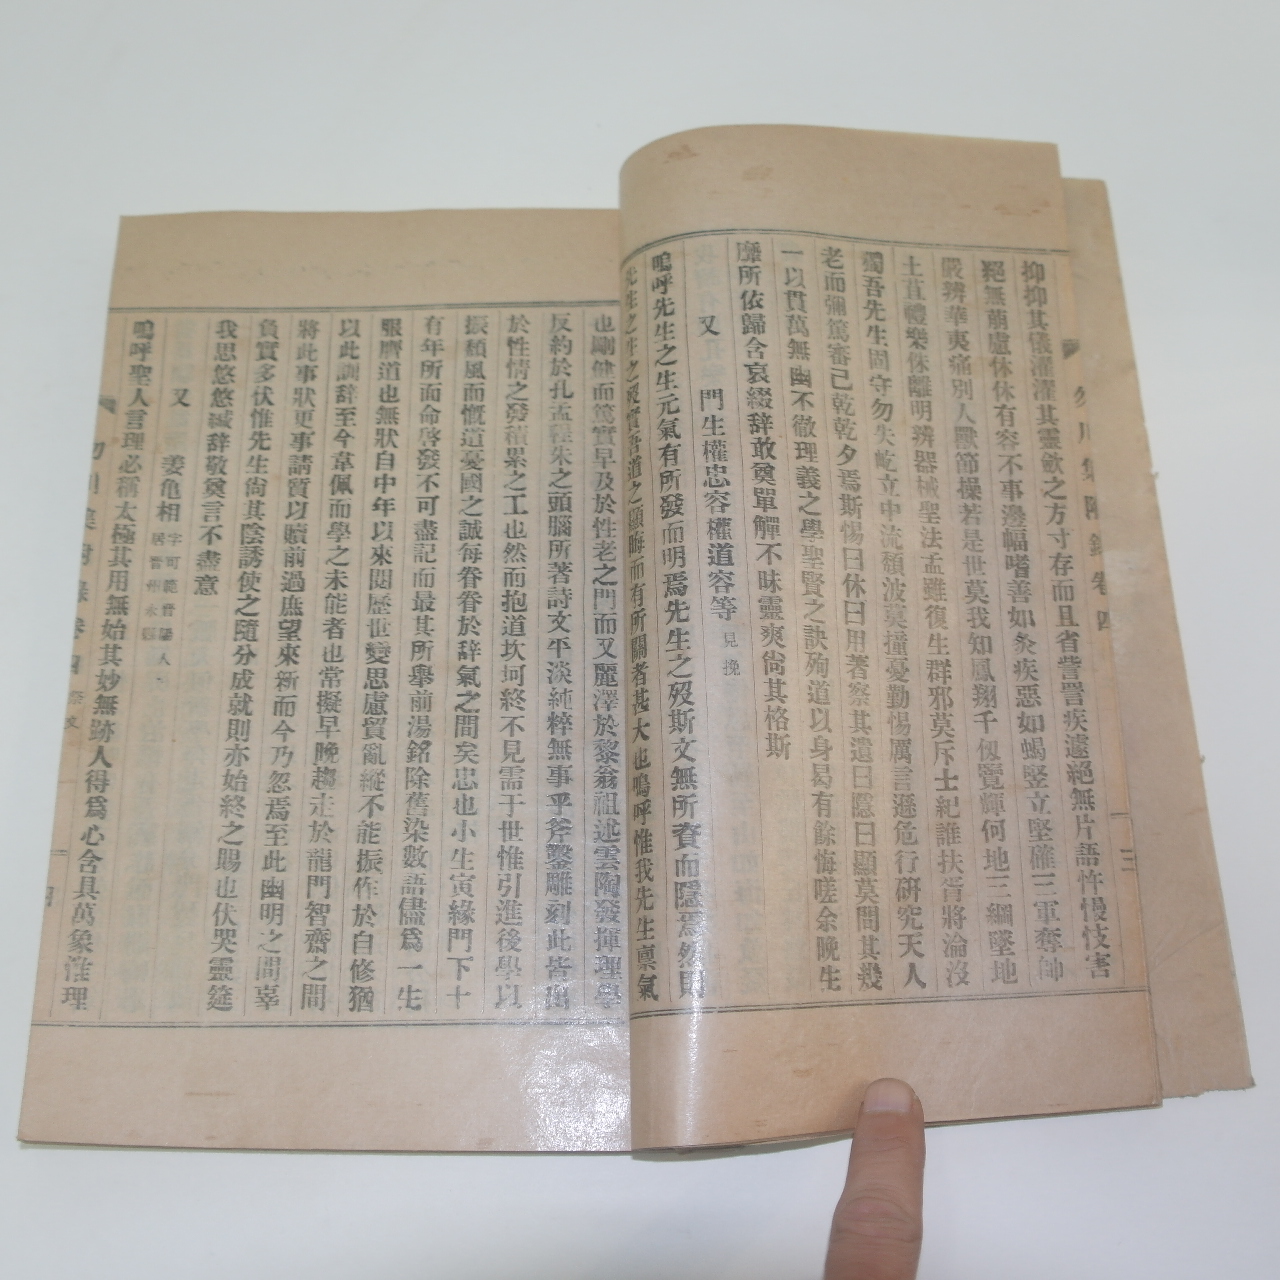 勿川集附錄卷四
三
抑抑其儀濯濯其靈斂之方寸存而且省訾詈疾遽絕無片語忤慢忮害
絕無萌慮休休有容不事邊幅嗜善如灸疾惡如蝎竪立堅確三軍奪帥
嚴辨華夷痛別人獸節操若是世莫我知鳳翔千仞覽輝何地三綱墜地
土苴禮樂侏離明辨器械聖法孟雖復生群邪莫斥士紀誰扶胥將淪沒
獨吾先生固守勿失屹立中流頹波莫撞憂勤惕厲言遜危行硏究天人
老而彌篤審己乾乾夕焉斯惕曰休曰用著察其遺曰隱曰顯莫問其幾
一以貫萬無幽不徹理義之學聖賢之訣殉道以身曷有餘悔嗟余晚生
靡所依歸含哀綴辭敢奠單觶不昧靈爽尙其格斯
又 門生權忠容權道容等 見挽
嗚呼先生之生元氣有所發而明焉先生之歿斯文無所賚而隱焉然則
先生之生之歿實吾道之顯晦而有所關者甚大也嗚呼惟我先生禀氣
也剛健而篤實早及於性老之門而又麗澤於黎翁祖述雲陶發揮理學
反約於孔孟程朱之頭腦所著詩文平淡純粹無事乎斧鑿雕刻此皆出
於性情之發積累之工也然而抱道坎坷終不見需于世惟引進後學以
振頹風而慨道憂國之誠每眷眷於辭氣之間矣忠也小生寅緣門下十
有年所而命啓發不可盡記而最其所擧前湯銘除舊染數語儘爲一生
張膺道也無狀自中年以來閱歷世變思慮貿亂縱不能振作於自修猶
以此訓辭至今韋佩而學之未能者也常擬早晚趨走於龍門智齋之間
將此事狀更事請質以贖前過庶望來新而今乃忽焉至此幽明之間辜
負實多伏惟先生尙其陰誘使之隨分成就則亦始終之賜也伏哭靈筵
我思悠悠緘辭敬奠言不盡意
又 姜龜相 字可範晋陽人 居晋州永
嗚呼聖人言理必稱太極其用無始其妙無跡人得爲心含具萬象淮理
勿川集附錄卷四 祭文
四